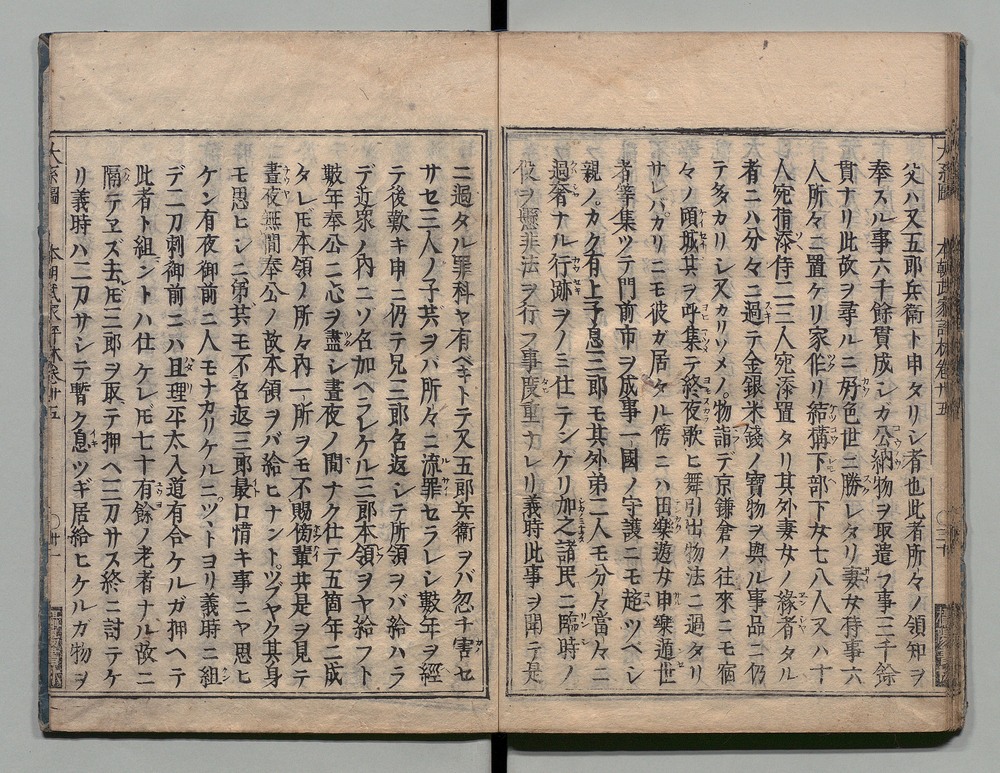 父ハ又五郎兵衛ト申タリシ者也此者所々ノ領知ヲ
奉スル事六千餘貫成シガ公納物ヲ取遣フ事三千餘
貫ナリ此故ヲ尋ルニ好色世ニ勝レタリ妻女持事六
人所々ニ置ケリ家作リ結構下部下女七八人又ハ十
人宛指添侍二三人宛添置タリ其外妻女ノ緣者タル
者ニハ分々ニ過テ金銀米錢ノ寶物ヲ與ル事品ニ仍
テ多カリシ又カリソメノ物詣デ京鎌倉ノ往來ニモ宿
々ノ頃城其ヲ呼集テ終夜歌ヒ舞引出物法ニ過タリ
サレバカリニモ彼カ居タル傍ニハ田樂遊女申樂遁世
者等集ツテ門前市ヲ成事一國ノ守護ニモ超ツベシ
親ノカク有上子息三郎モ其外弟二人モ分々當々ニ
過奢ナル行跡ヲノミ仕テンケリ加之諸民ニ臨時ノ
役ヲ懸非法ヲ行フ事度重ナレリ義時此事ヲ聞テ是
大系圖 本朝武家評林卷廿五 〇三十
ニ過タル罪科ヤ有ベキトテ又五郎兵衛ヲバ忽チ害セ
サセ三人ノ子共ヲバ所々ニ流罪セラレシ數年ヲ經
テ後歎キ申ニ仍テ兄三郎名返シテ所領ヲバ給ハラ
デ近衆ノ内ニソ名加ヘラレケル三郎本領ヲヤ給フト
數年奉公ニ心ヲ盡シ晝夜ノ間ナク仕テ五箇年ニ成
タレモ本領ノ所々内一所ヲモ不賜傍輩共是ヲ見テ
晝夜無間奉公ノ故本領ヲバ給ヒナントツブヤク其身
モ思ヒシニ弟共モ不名返三郎最口情キ事ニヤ思ヒ
ケン有夜御前ニ人モナカリケルニツヽトヨリ義時ニ組
デ二刀刺御前ニハ且理平太入道有合ケルガ押ヘテ
此者ト組ントハ仕ケレモ七十有餘ノ老者ナル故ニ
隔テヱズ去モ三郎ヲ取テ押ヘ三刀サス終ニ討テケ
リ義時ハ二刀サシテ暫ク息ツギ居給ヒケルガ物ヲ
大系圖 本朝武家評林卷廿五 〇廿一